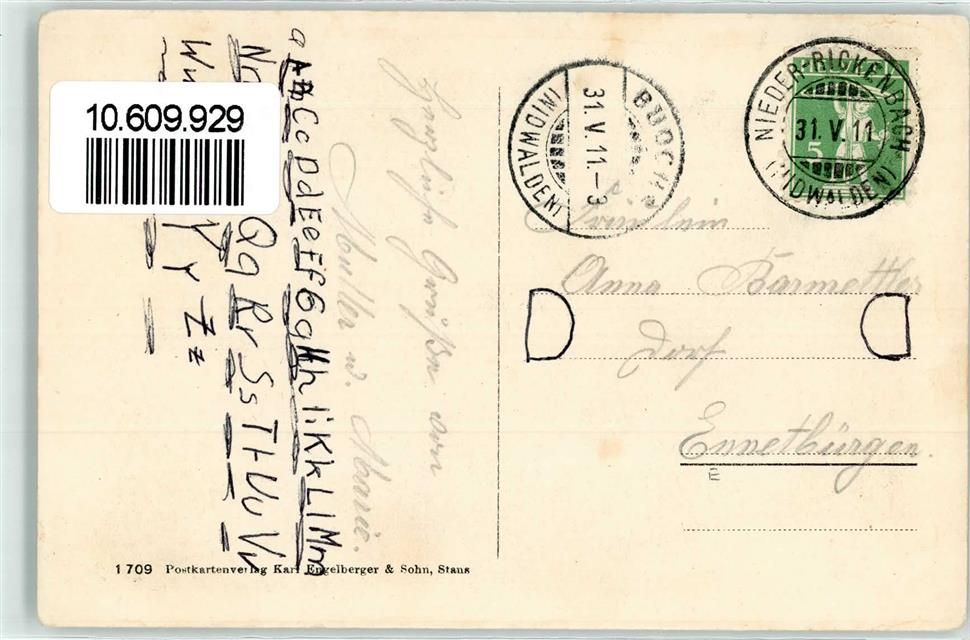 10.609.929
NIEDER-RICKENBACH
31.V.11
(NIDWALDEN)
5
BUOCHS
31.V.11.-3
(NIDWALDEN)
Fräulein
Anna Barmettler
Dorf
Ennetbürgen.
E
Herzliche Grüße von
Mutter u. Marie.
a A Bb Cc Dd Ee Ff Gg Hh Ii Kk Ll Mm
Qq Rr Ss Tt Uu Vv
Y Y Z z
1709 Postkartenverlag Karl Engelberger & Sohn, Stans